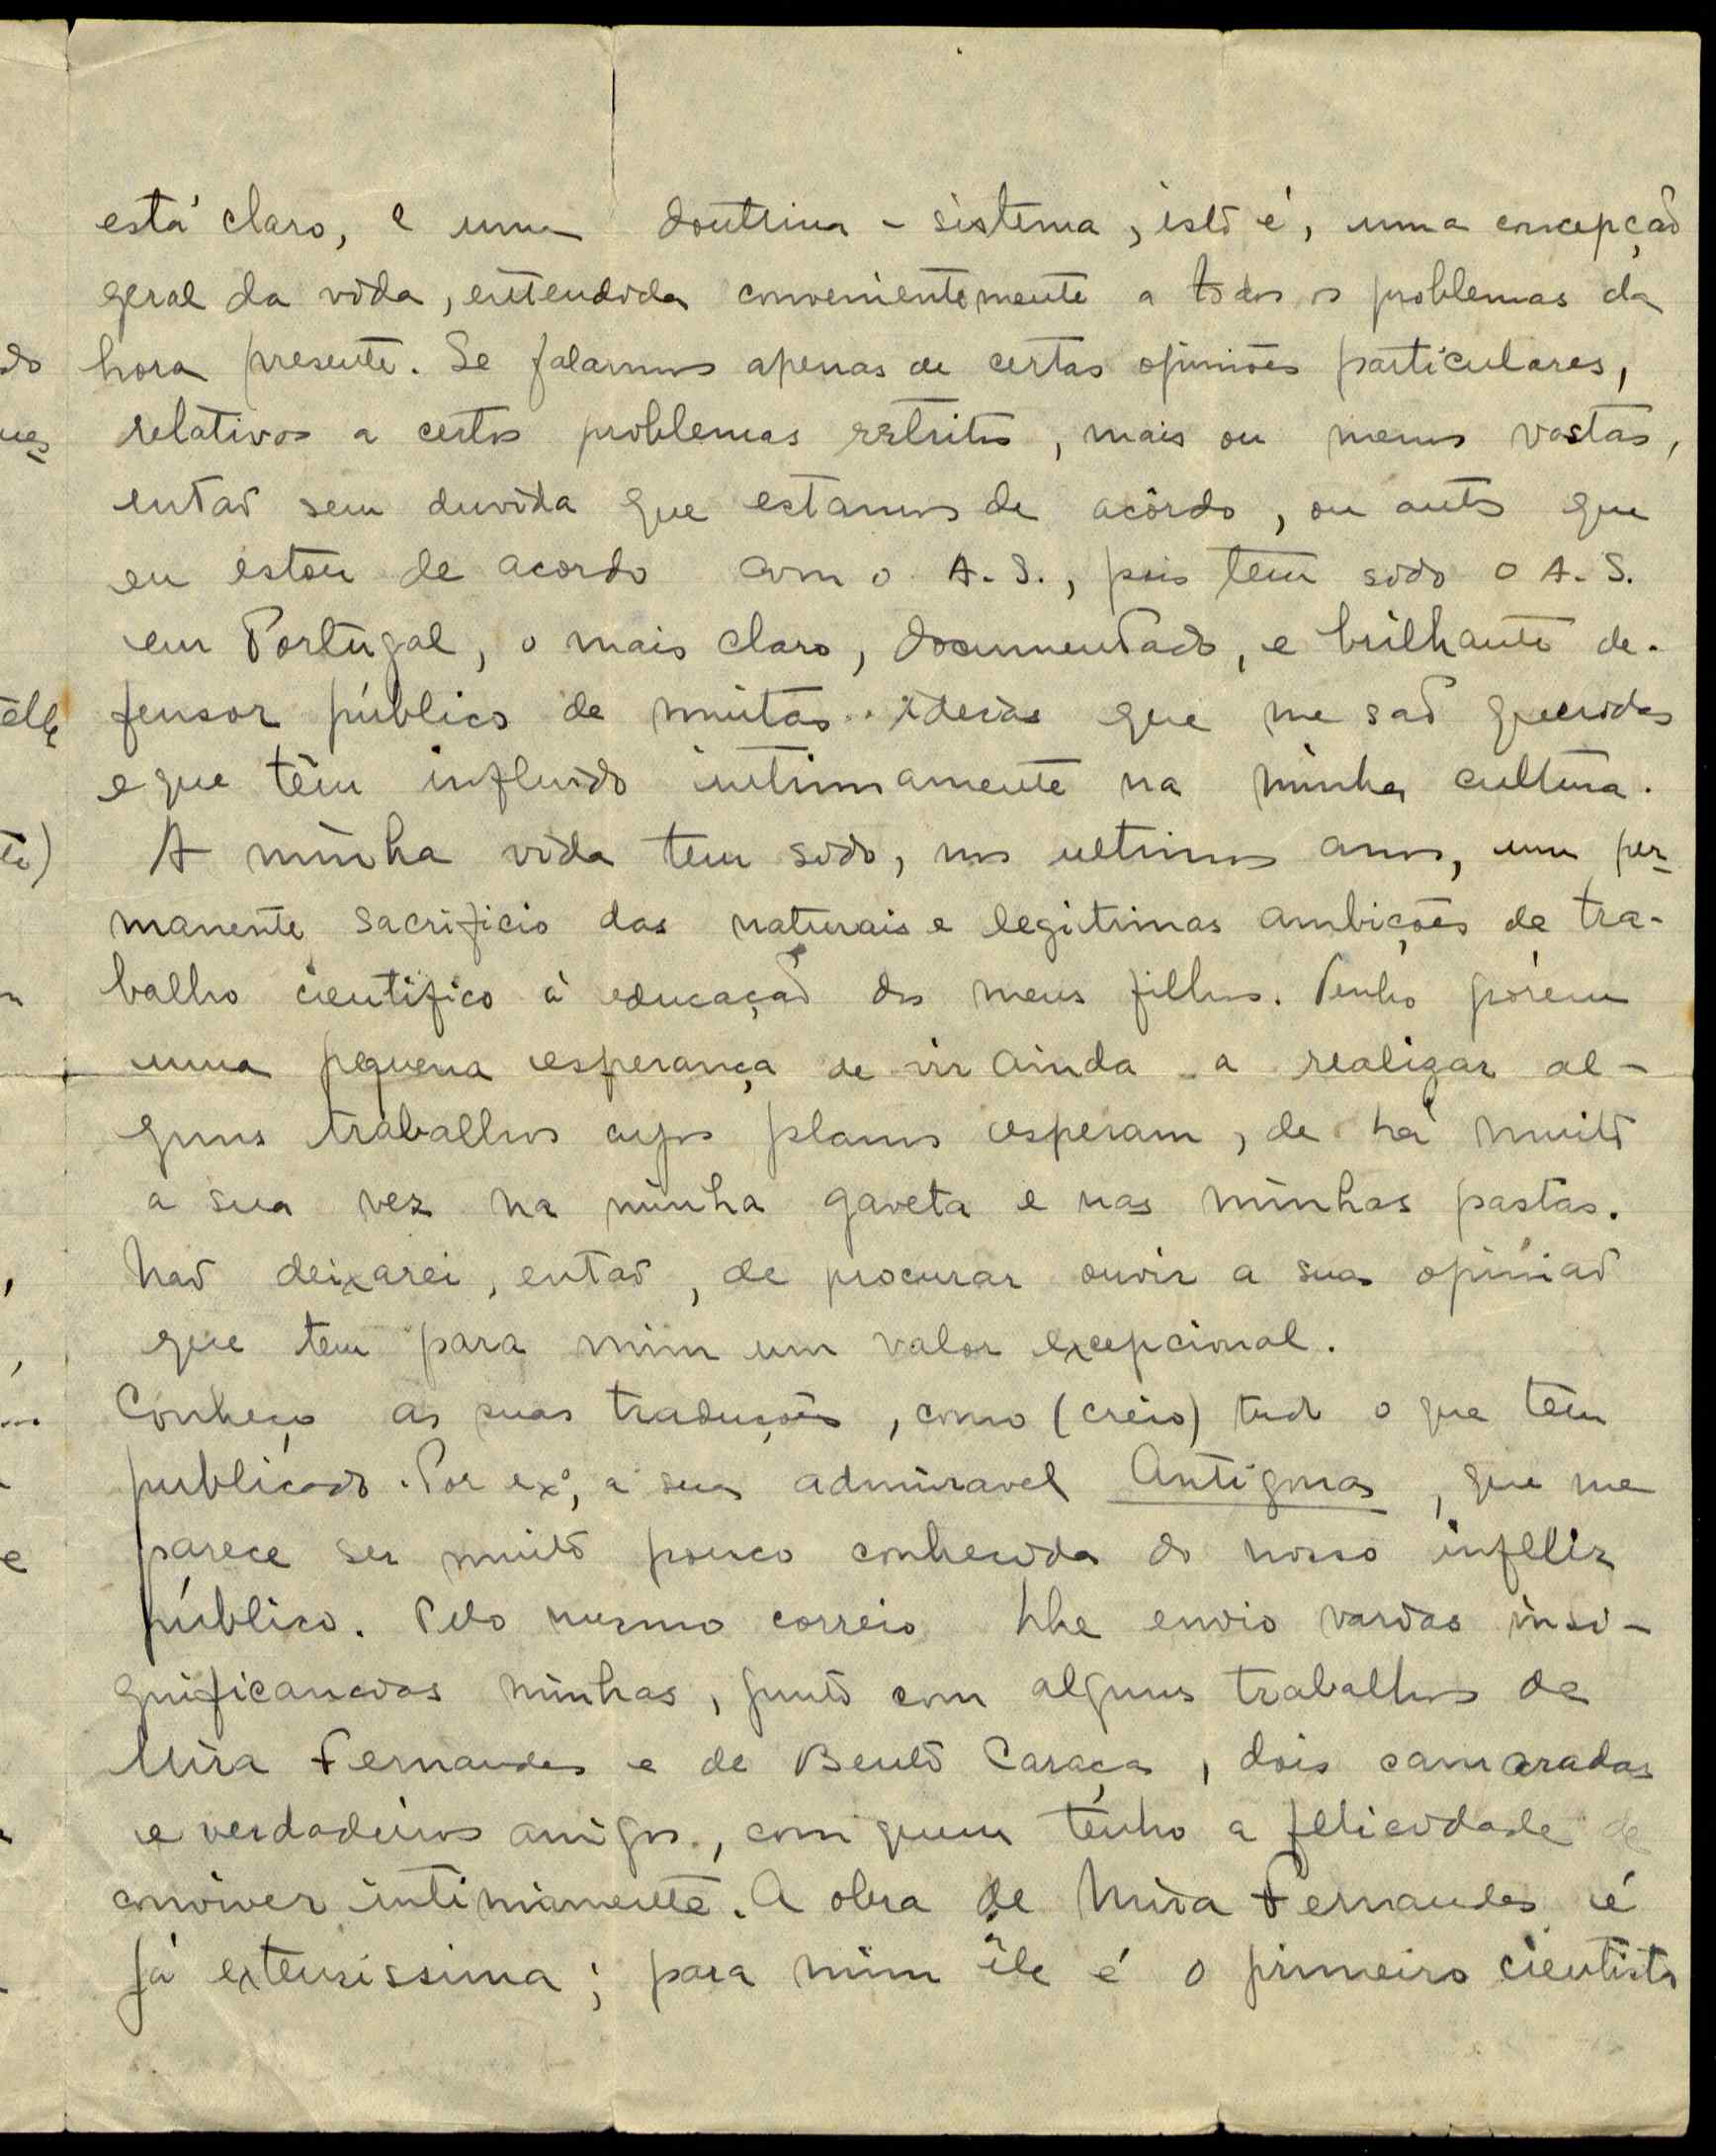 está claro, e uma doutrina - sistema, isto é, uma concepção
geral da vida, entendida convenientemente a todos os problemas da
hora presente. Se falarmos apenas de certas opiniões particulares,
relativos a certos problemas restritos, mais ou menos vastas,
entao sem duvida que estamos de acôrdo, ou antes que
eu estou de acordo com o A. S., pois tem sido o A. S.
em Portugal, o mais claro, documentado, e brilhante de-
fensor público de muitas ideias que me saõ queridas
e que têm influido intimamente na minha cultura.
A minha vida tem sido, nos ultimos anos, um per-
manente sacrificio das naturais e legitimas ambições de tra-
balho cientifico à educaçaõ dos meus filhos. Tenho porém
uma pequena esperança de vir ainda a realizar al-
guns trabalhos cujos planos esperam, de há muito
a sua vez na minha gaveta e nas minhas pastas.
Naõ deixarei, entaõ, de procurar ouvir a sua opiniaõ
que tem para mim um valor excepcional.
Conheço as suas traduções, como (creio) tudo o que tem
publicado. Por exº, a sua admiravel Antigona, que me
parece ser muito pouco conhecida do nosso infeliz
público. Pelo mesmo correio lhe envio varias insi-
gnificancias minhas, junto com alguns trabalhos de
Mira Fernandes e de Bento Caraça, dois camaradas
e verdadeiros amigos, com quem tenho a felicidade de
conviver intimamente. A obra de Mira Fernandes é
já extensissima; para mim êle é o primeiro cientista
do
ues
elle
te)